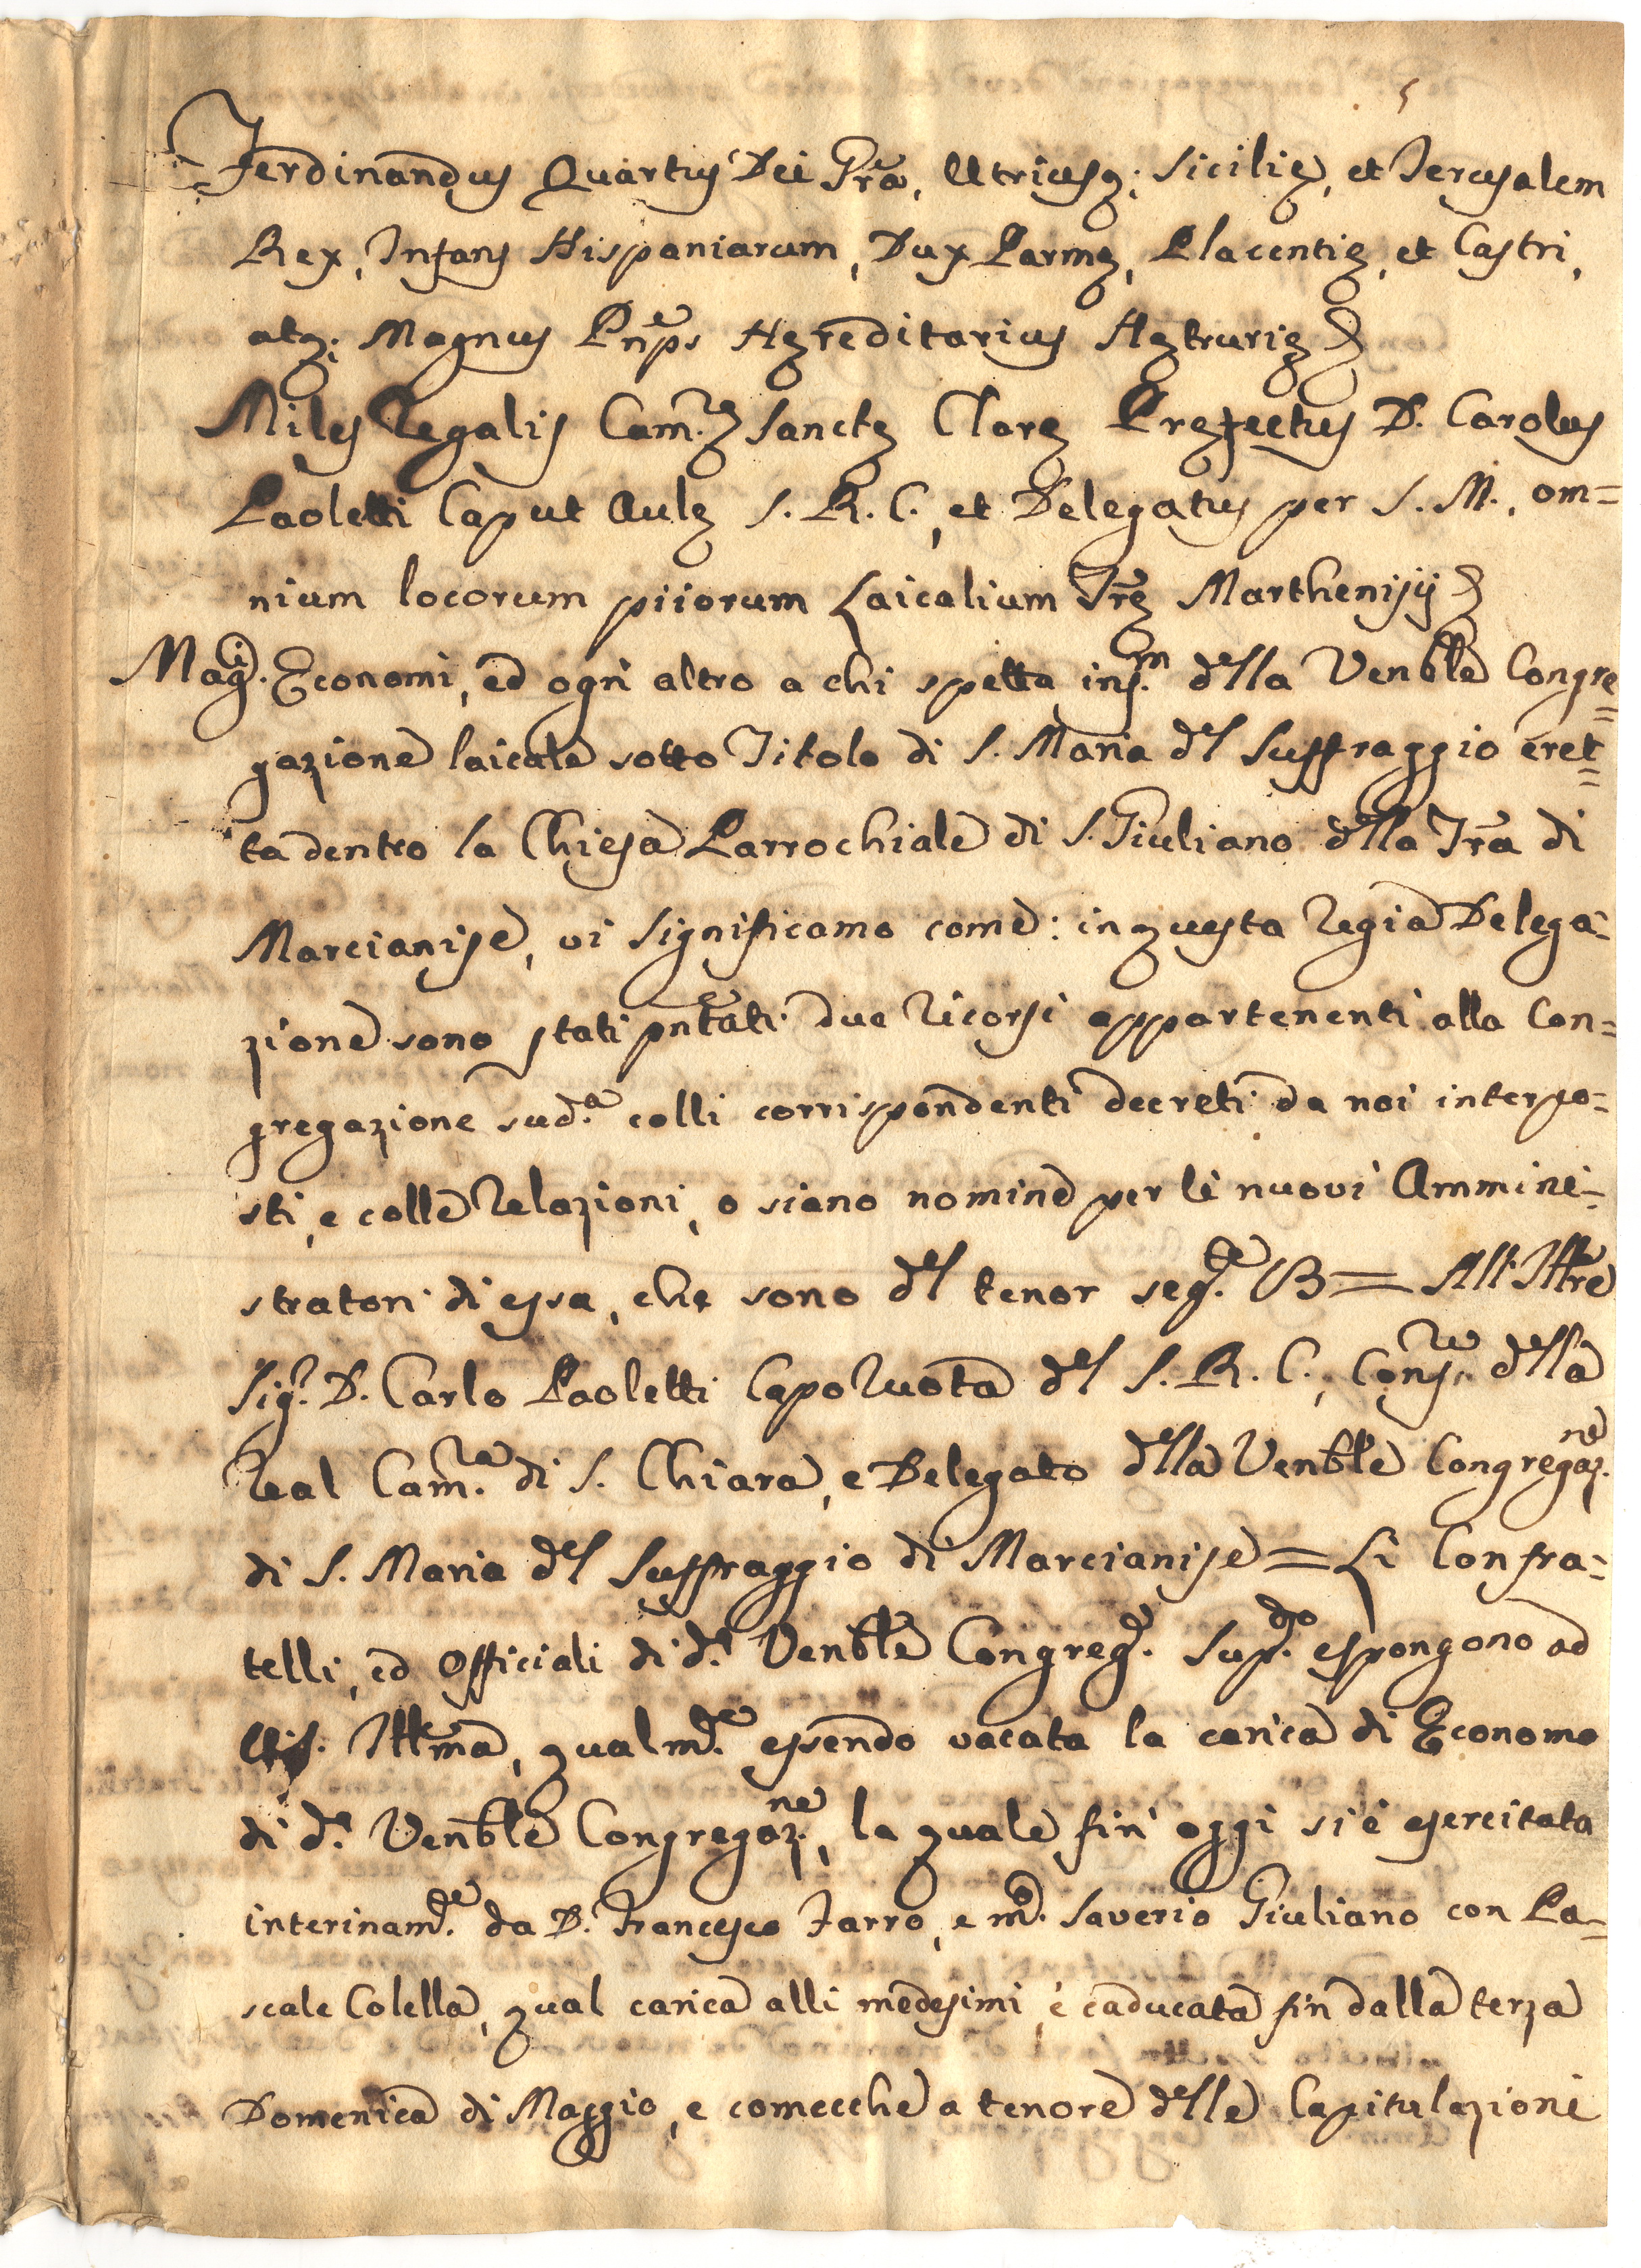 5
Ferdinandus Quartus Dei Grã, Utriusq; Sicilię, et Jerusalem
Rex, Infans Hispaniarum, Dux Parmę, Placentię, et Castri,
atq; Magnus Pnp̃s Hęreditarius Hętrurię
Miles Regalis Cam.ę Sanctę Clarę Pręfectus D. Carolus
Paoletti Caput Aulę S. R. C., et Delegatus per S. M., om=
nium locorum piiorum Laicalium Trę Marthenisij
Mag.ci Economi, ed ogni altro a chi spetta ins.m dlla Venble Congre=
gazione laicale sotto Titolo di S. Maria dl Suffraggio eret=
ta dentro la Chiesa Parrochiale di S. Giuliano dlla Trã di
Marcianise, vi significamo come: in questa Regia Delega=
zione sono stati pntati due Ricorsi appartenenti alla Con=
gregazione sud.a colli corrispondenti decreti da noi interpo=
sti, e colle Relazioni, o siano nomine per li nuovi Ammini=
stratori di essa, che sono dl tenor seg.te = All'Illre
Sig.r D. Carlo Paoletti Capo Ruota dl S. R. C., Cons.re dlla
Real Cam.ra di S. Chiara, e Delegato dlla Venble Congregaz.ne
di S. Maria dl Suffraggio di Marcianise = Li Confra=
telli, ed Officiali di d.a Venble Congreg.e sup.do espongono ad
Illma, qualm.te essendo vacata la carica di Economo
di d.a Venble Congregaz.ne, la quale fin'oggi si è esercitata
interinam.te da D. Francesco Farro, e m.o Saverio Giuliano con Pa=
scale Colella, qual carica alli medesimi è caducata fin dalla terza
Domenica di Maggio, e comecche a tenore dlle Capitulazioni